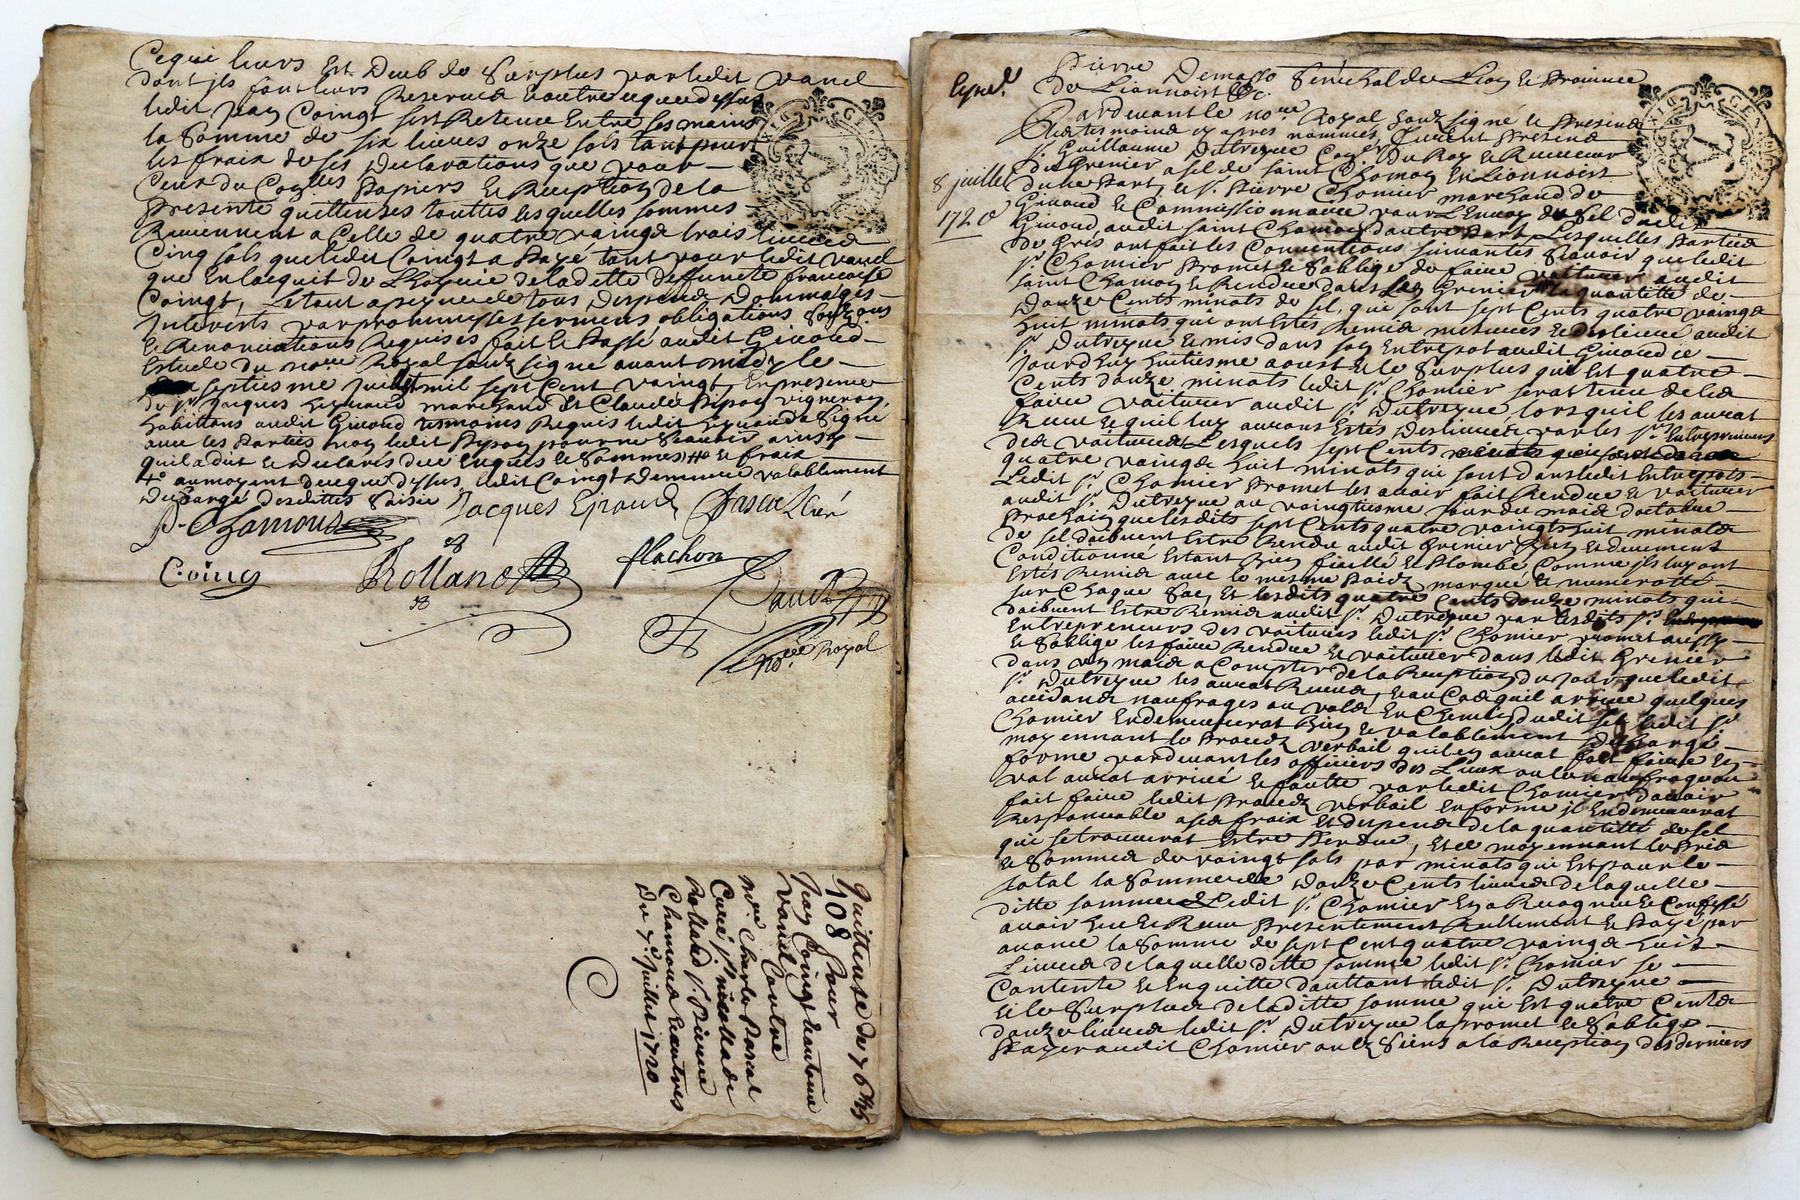 Ce qui leurs Est Deub de Surplus par ledit Vanel
dont ils font leurs Reserves Et outre ce que dessus
ledit Jean Coingt sest Retenu Entre ses mains
la Somme de six livres onze sols tant pour
les fraix de ses declarations que pour
Ceux du Con^lles Papiers Et Reception de la
Presente quittense touttes lesquelles sommes
Reviennent a Celle de quatre vaingt trois livres
Cinq sols que ledit Coingt a Payé tant pour ledit Vanel
que En lacquit de L'hoyrie de ladette deffuncte francoise
Coingt,
Interests par promesses sermens obligations
Et Renonciations Requises fait Et Passé audit Givord
Estude du no^re Royal soubsigné avant midy le
septiesme Juillet mil sept Cent vaingt, En presence
de s^r Jacques marchand Et Claude vigneron
habittans audit Givord tesmoins Requis ledit Signé
avec les Parties non ledit pour ne Scavoir ainsy
quil a dit Et declaré de ce Enquis Et Sommés Et fraix
au moyen de ce que dessus ledit Coingt demeure valablement
Duchargé desdittes Saisie
Chamoux Jacques Giraud Pascal Curé
Coing Rolland flachon
no^re Royal
Quittense de
108 pour
Jean Coingt Et antoine
Vanel Contre
M^re Charle Pascal
Curé s^r nicollas de
Rolland s^r Pierre
Chamoux Et autres
Du 7^e Juillet 1720
Pierre Demasso Senechal de Lion Et Province
De Lionnoist &c.
8 juillet
1720
Pardevant le no^re Royal soubsigné Et Presens
les tesmoins cy apres nommés furent Presens
s^r Guillaume Dutreyue Con^er Du Roy Et Receveur
du Grenier a sel de saint Chamon En Lionnoist
Dune Part, Et s^r Pierre Chomier marchand de
Givord Et Commissionnaire pour Lenvoy du Sel dudit
Givord, audit saint Chamon dautre Part Lesquelles Parties
de Gris ont fait les Conventions suivantes Scavoir que ledit
s^r Chomier Promet Et Soblige de faire voiturer audit
saint Chamon Et Rendre dans son Grenier la quantitté de
Douze Cents minots de sel, que sont sept Cents quatre vaingt
huit minots qui ont Estés Remis mesurés Et audit
s^r Dutreyue Et mis dans son Entrepot audit Givord ce
jourdhuy huitiesme aoust Et le Surplus qui Est quatre
Cents douze minots ledit s^r Chomier serat tenu de les
faire voiturer audit s^r Dutreyue lorsquil les aurat
Receu Et quil luy auront Estés deslivrés par les s^rs Entrepreneurs
des voitures Lesquels sept Cents
quatre vaingt huit minots qui sont dans ledit Entrepots
Ledit s^r Chomier Promet les avoir fait Rendre Et voiturer
audit s^r Dutreyue au vaingtiesme jour du mois doctobre
Prochain que lesdits sept Cents quatre vaingts huit minots
de sel doibvent Estre Rendu audit Grenier Bien Et deuement
Conditionné Estant Bien fiscellé Et Plombé Comme ils luy ont
Estés Remis avec le mesme Poids marqué Et numerotté
sur Chaque Sac, Et lesdits quatre Cents douze minots qui
doibvent Estre Remis audit s^r Dutreyue par lesdits s^rs
Entrepreneurs des voitures ledit s^r Chomier promet aussy
Et Soblige les faire Rendre Et voiturer dans ledit Grenier
dans un mois a Compter de la Reception du jour que ledit
s^r Dutreyue les aurat Receus, Et au Cas quil arrive quelques
accidans naufrages ou vols En Chemin dudit sel ledit s^r
Chomier En demeurerat Bien Et valablement deschargé
moyennant le Procés verbail quil en aurat fait faire En
forme pardevant les officiers des Lieux ou le naufrage ou
vol aurat arrivé Et faulte par ledit Chomier davoir
fait faire ledit Procés verbail En forme il En demeurerat
Responsable a ses fraix Et despens de la quantitté de sel
qui se trouverat Estre Perdue, Et ce moyennant le Prix
Et Somme de vaingt sols par minots qui Est pour le
total la Somme de Douze Cents livres de laquelle
ditte somme Ledit s^r Chomier En a Recogneu Et Confessé
avoir heu Et Receu Presentement Reellement Et Payé par
avance la Somme de sept Cent quatre vaingt huit
Livres de laquelle ditte somme ledit s^r Chomier se
Contente Et En quitte dauttant ledit s^r Dutreyue
Et le Surplus de laditte somme qui Est quatre Cents
douze livres ledit s^r Dutreyue la promet Et Soblige
Payer audit Chomier ou Es Siens a la Reception des derniers